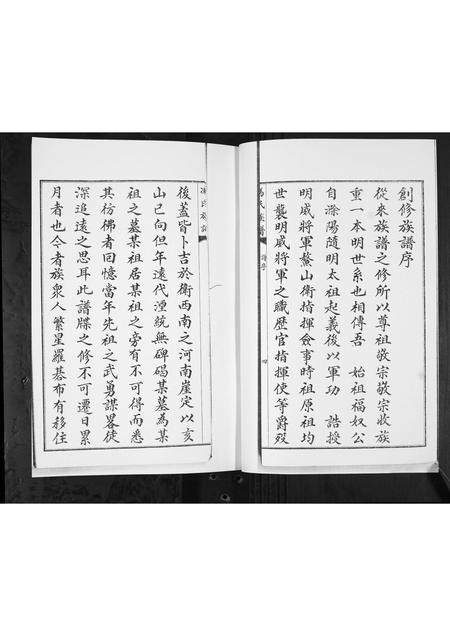 創修族譜序
從來族譜之修所以尊祖敬宗敬宗收族
重一本明世系也相傳吾 始祖福奴公
自滁陽隨明太祖起義後以軍功 誥授
明威將軍鰲山衛指揮僉事時祖原祖均
世襲明威將軍之職歷官指揮使等爵歿
氏族譜
譜序
後蓋皆卜吉於衛西南之河南崖定以亥
山巳向但年遠代湮統無碑碣某墓為某
祖之墓某祖居某祖之旁有不可得而悉
其彷彿者回憶當年先祖之武勇謀畧徒
深追遠之思耳此譜牒之修不可遷日累
月者也今者族衆人繁星羅碁布有移住